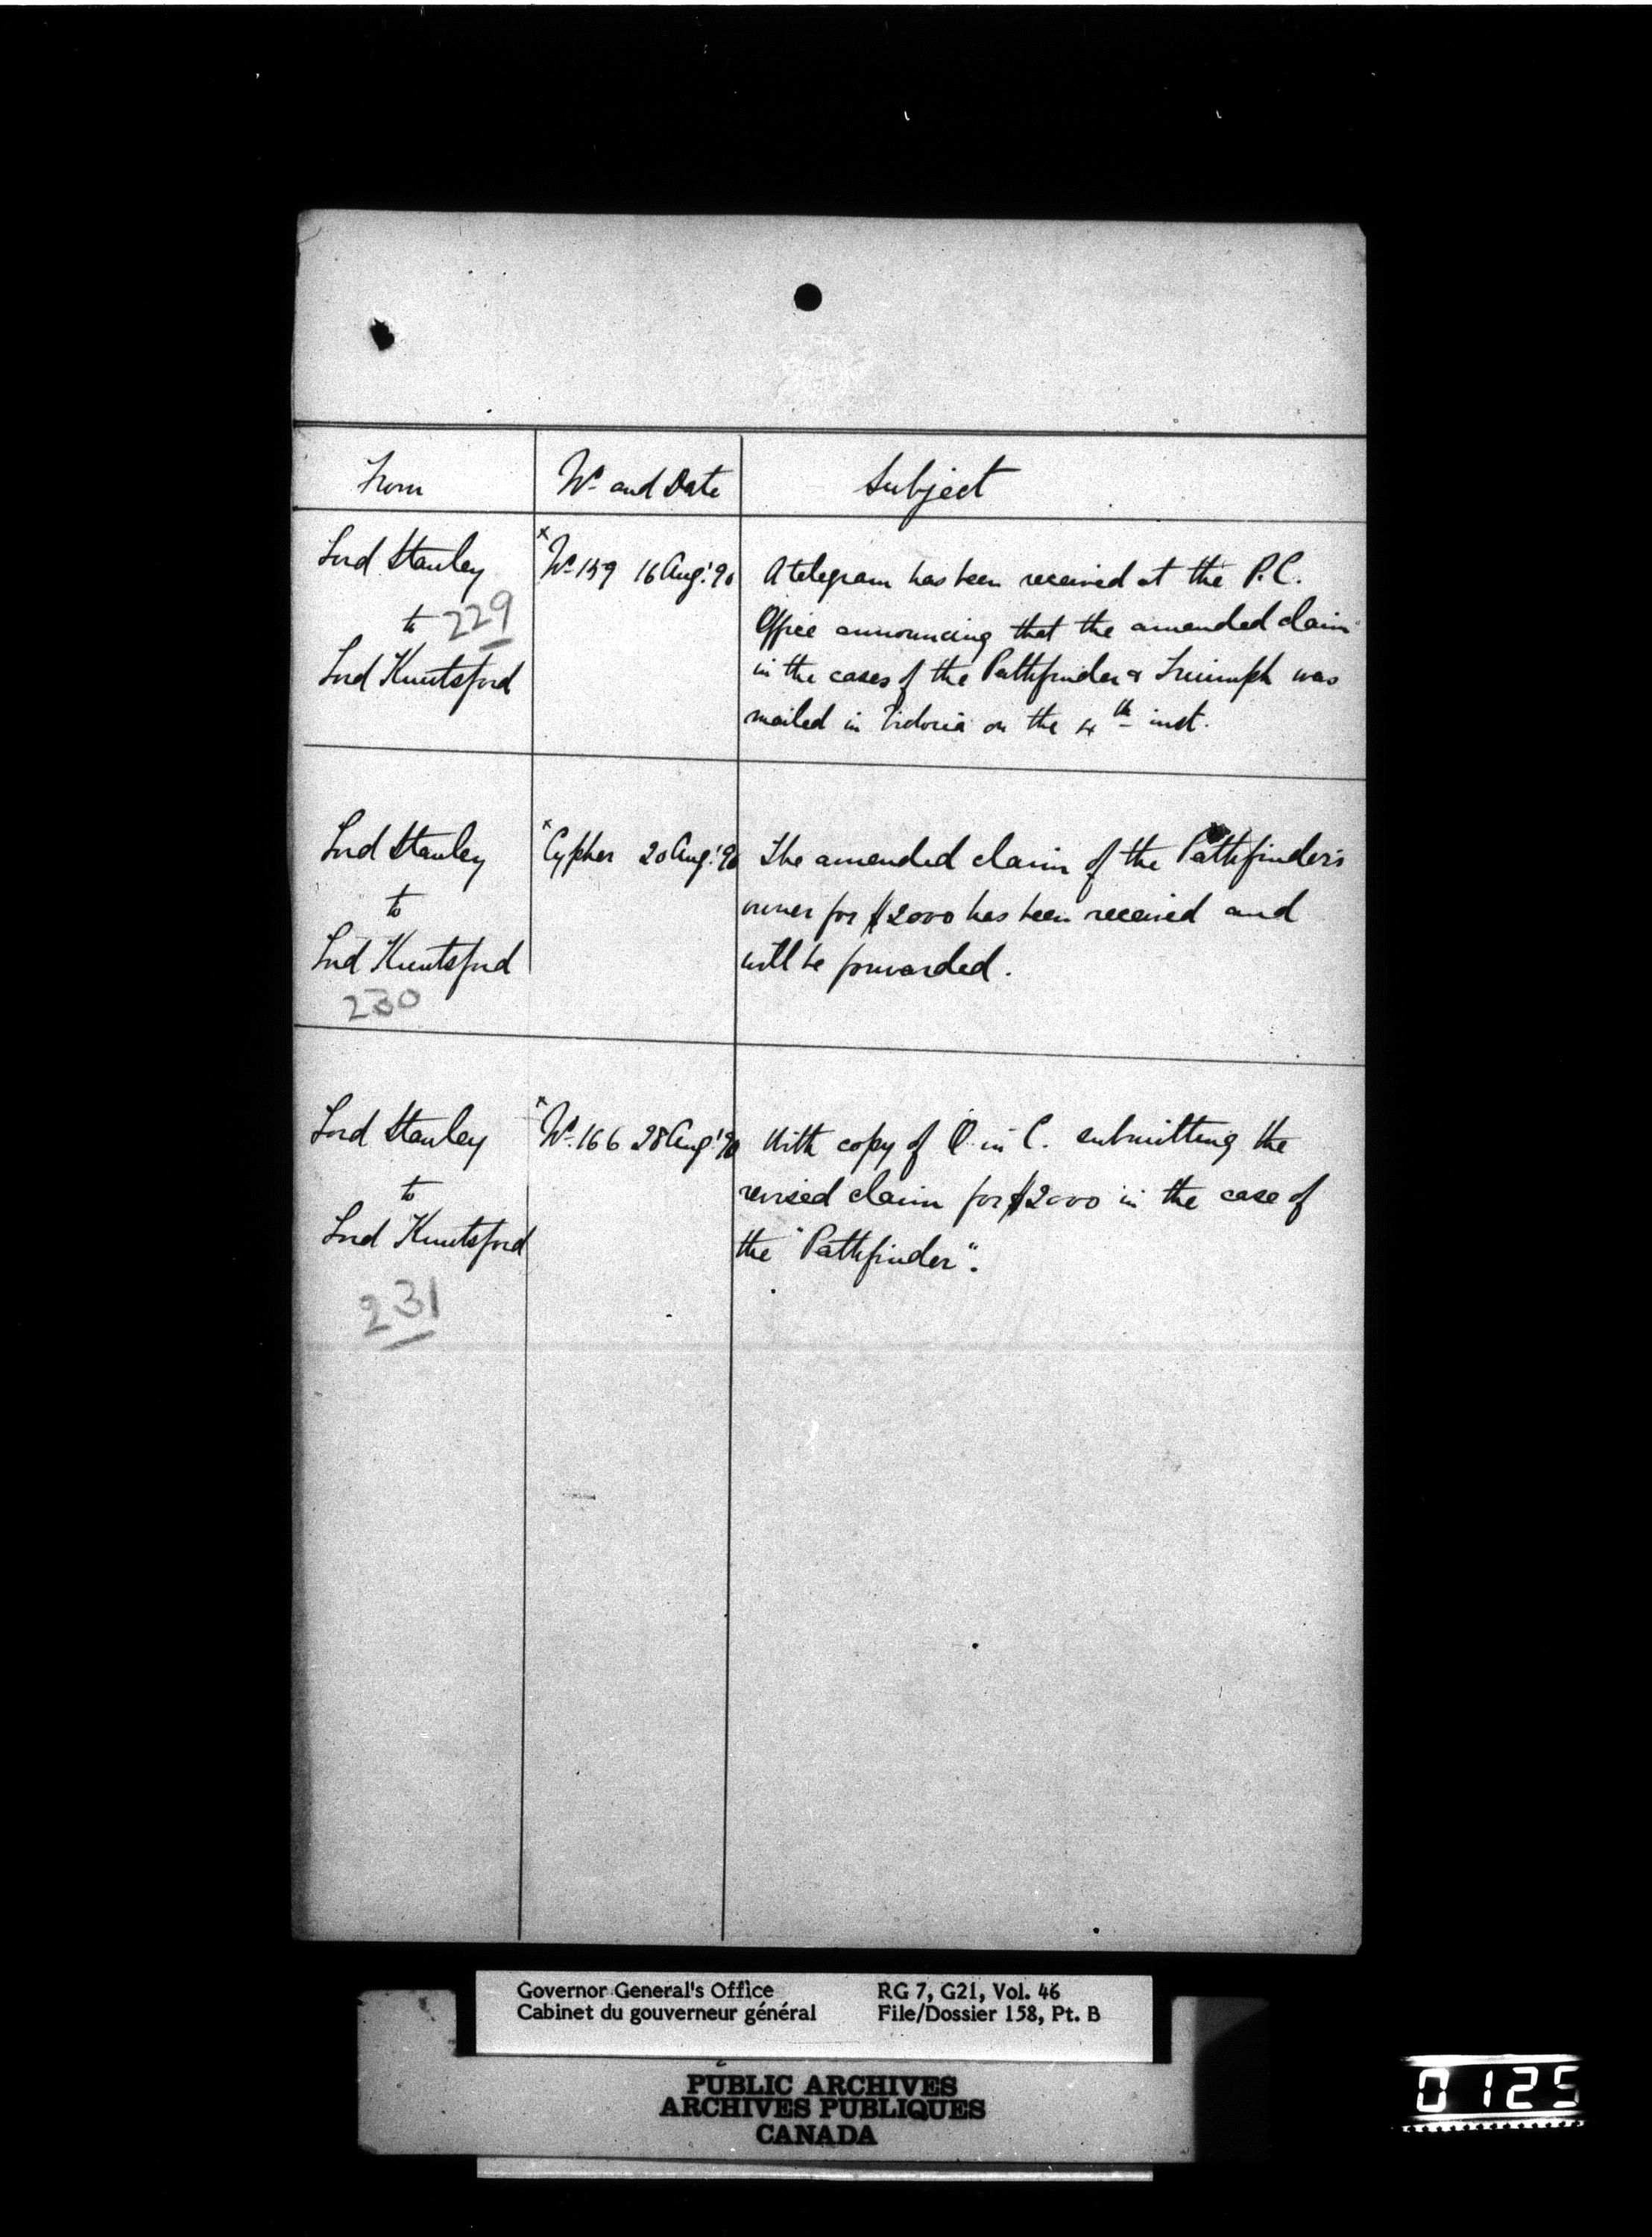 From Nº and Date Subject
Lord Stanley
to 229
Lord Knutsford
x Nº 159 16 Aug! 90
A telegram has been received at the P.C.
Office announcing that the amended claim
in the cases of the Pathfinder & Triumph was
mailed in Victoria on the 4th inst.
Lord Stanley
to
Lord Knutsford
230
x Cypher 20 Aug! 90
The amended claim of the Pathfinder's
owner for $2000 has been received and
will be forwarded.
Lord Stanley
to
Lord Knutsford
231
x Nº 166 28 Aug! 90
With copy of O. in C. submitting the
revised claim for $2000 in the case of
the "Pathfinder".
Governor General's Office
Cabinet du gouverneur général
RG 7, G21, Vol. 46
File/Dossier 158, Pt. B
PUBLIC ARCHIVES
ARCHIVES PUBLIQUES
CANADA
0125